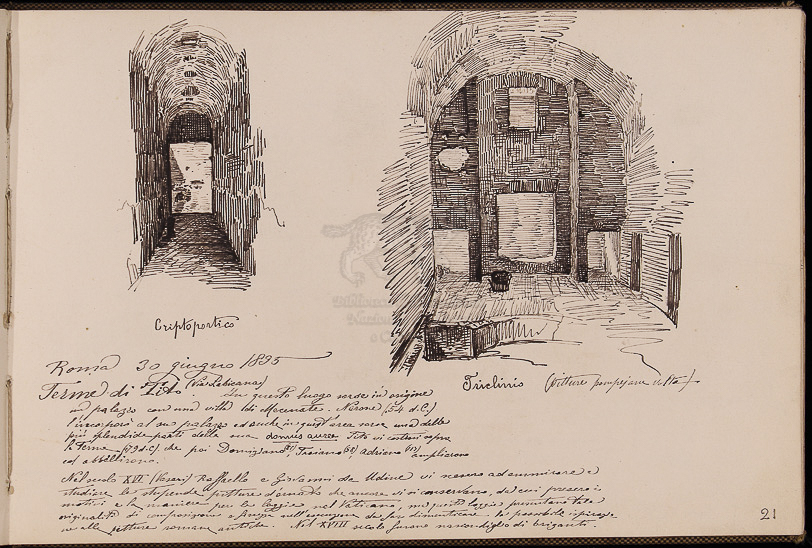 Criptoportico
Triclinio (Pitture pompejane volta)
Roma 30 giugno 1895
Terme di Tito (Via Labicana). In questo luogo sorse in origine
un palazzo con una villa di Mecenate. Nerone (54 d.C.)
l'incorporò al suo palazzo ed anche in quest'area sorse una delle
più splendide parti della sua domus aurea. Tito vi costruì sopra
le Terme (79 d.C.) che poi Domiziano, Traiano, Adriano ampliarono
ed abbellirono.
Nel secolo XVI (Vasari) Raffaello e Giovanni da Udine vi vennero ad ammirare e
studiare le stupende pitture d'ornato che ancora vi si conservano, da cui presero i
motivi e la maniera per le loggie nel Vaticano, ma queste loggie
originalità di composizione e da far dimenticare la possibile ispirazio-
ne alle pitture romane antiche. Nel XVIII secolo furono nascondiglio di briganti.
21